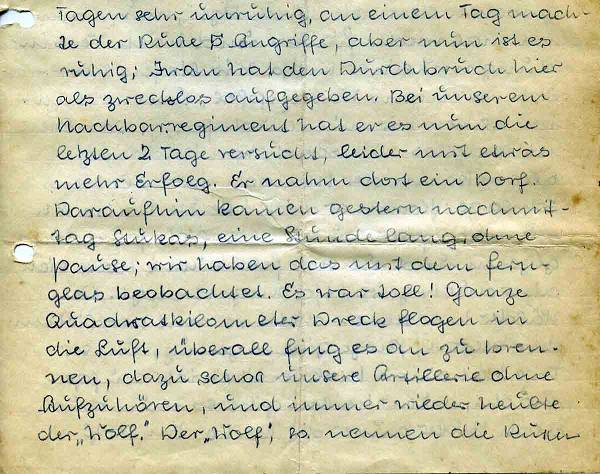 Tagen sehr unruhig, an einem Tag mach-
te der Ruße 5 Angriffe, aber nun ist es
ruhig; Iwan hat den Durchbruch hier
als zwecklos aufgegeben. Bei unserem
Nachbarregiment hat er es nun die
letzten 2 Tage versucht, leider mit etwas
mehr Erfolg. Er nahm dort ein Dorf.
Daraufhin kamen gestern nachmit-
tag Stukas, eine Stunde lang, ohne
Pause; wir haben das mit dem Fern-
glas beobachtet. Es war toll! Ganze
Quadratkilometer Dreck flogen in
die Luft, überall fing es an zu bren-
nen, dazu schoß unsere Artillerie ohne
Aufzuhören, und immer wieder heulte
der „Wolf.” Der „Wolf”, so nennen die Rußen